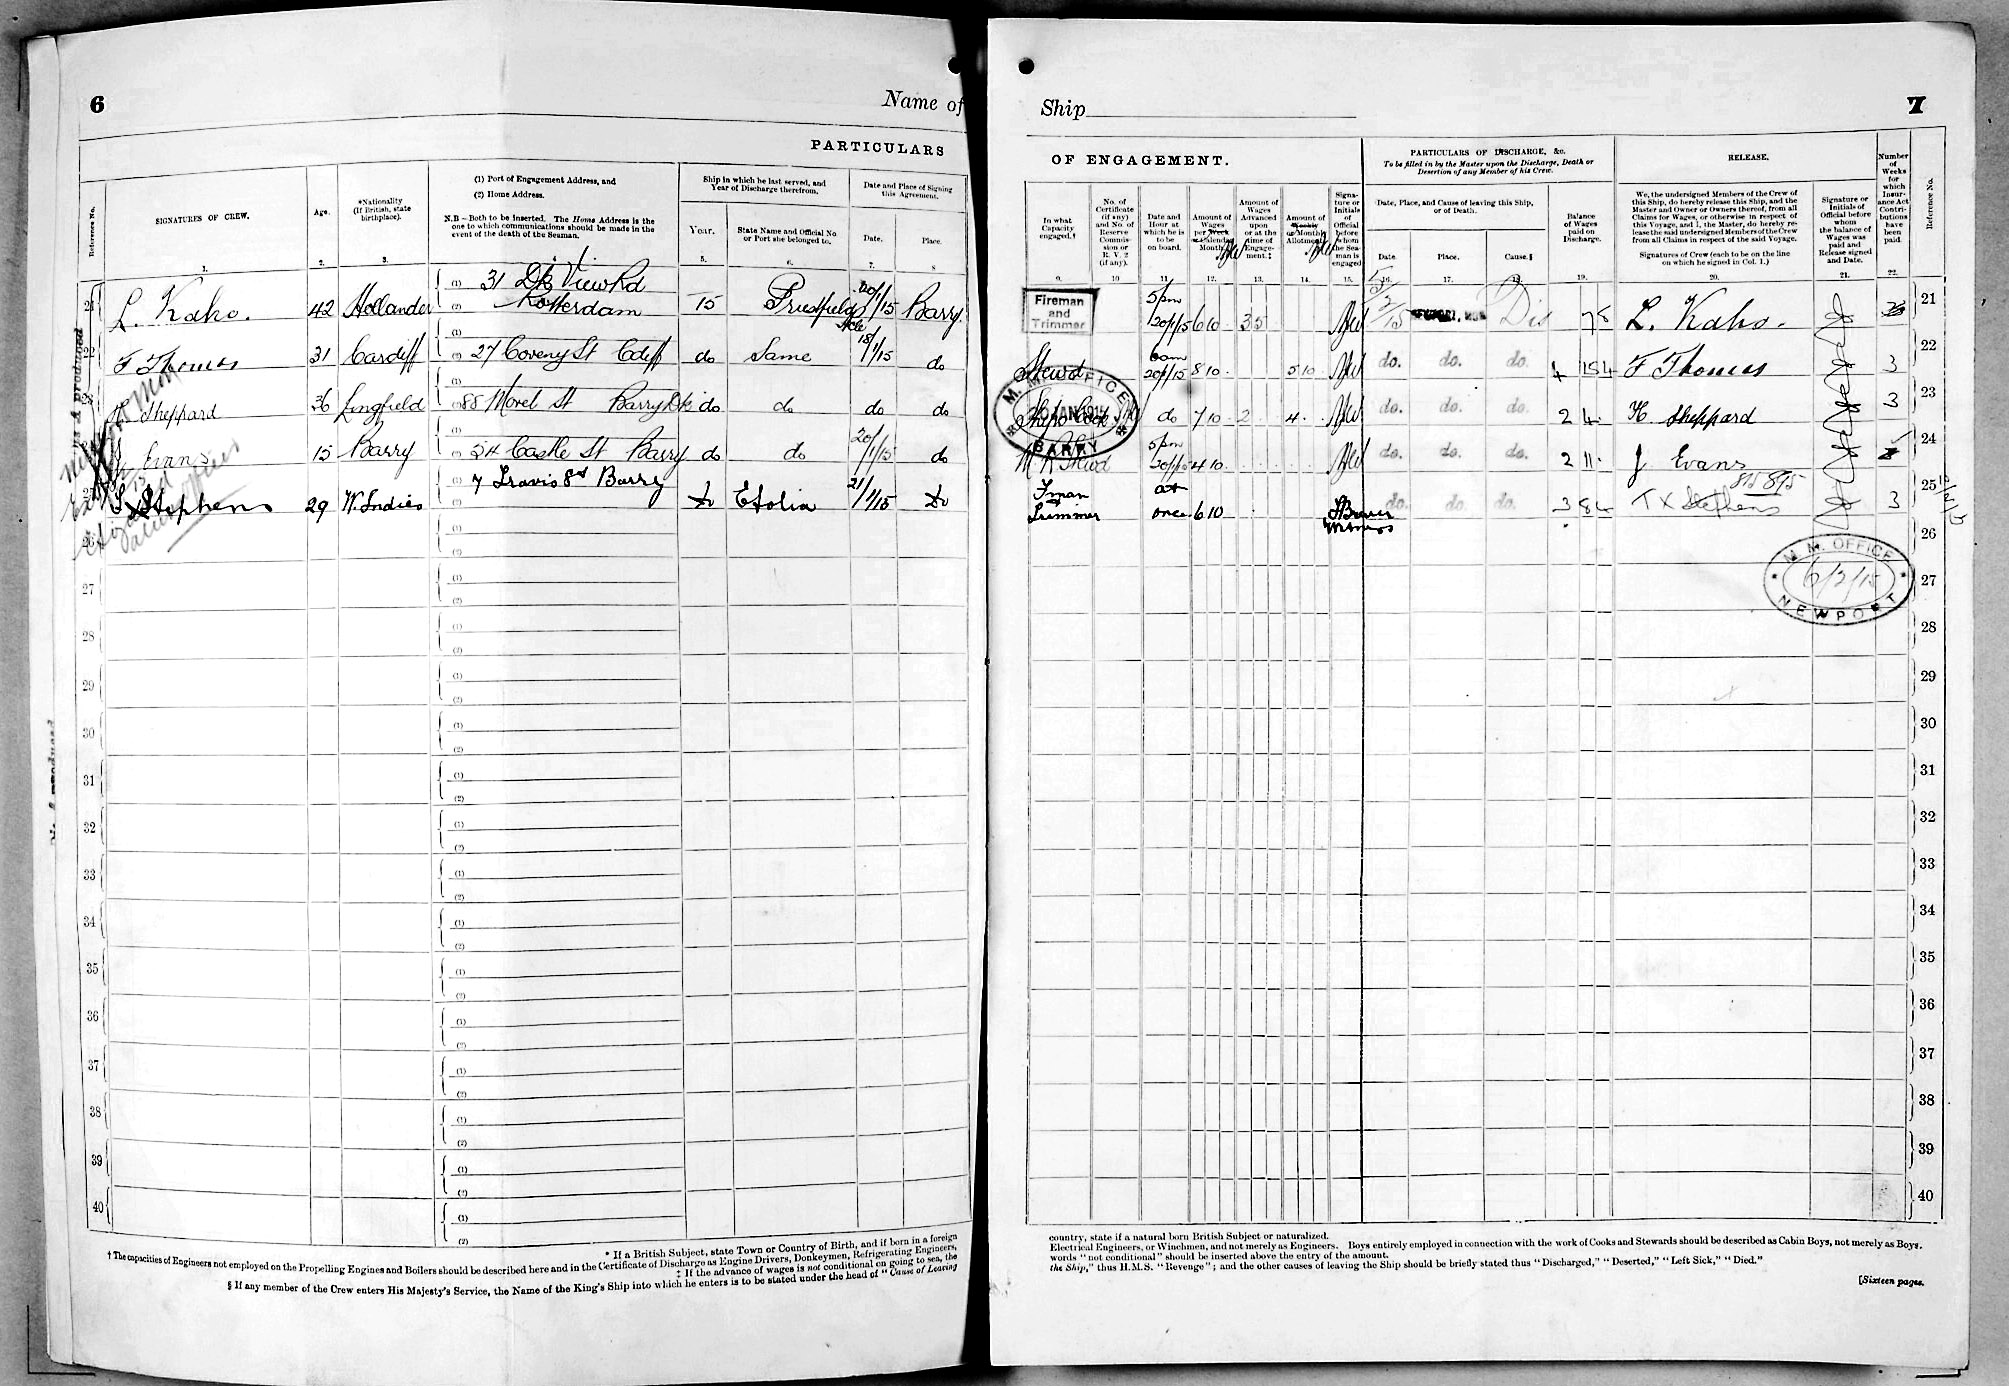 6
Name of
PARTICULARS
Reference No.
SIGNATURES OF CREW.
Age.
*Nationality
(If British, state
birthplace).
(1) Port of Engagement Address, and
(2) Home Address.
N.B.—Both to be inserted. The Home Address is the
one to which communications should be made in the
event of the death of the Seaman.
Ship in which he last served, and
Year of Discharge therefrom.
Year.
State Name and Official No.
or Port she belonged to.
Date and Place of Signing
this Agreement.
Date.
Place.
1. 2. 3. 4. 5. 6. 7. 8
21 L. Kaho. 42 Hollander (1) 31 Dk View Rd
(2) Rotterdam 15 Priestfield 20/1/15 Barry
22 F Thomas 31 Cardiff 27 Coveny St Cdiff do Same 18/1/15 do
23 H. Sheppard 36 Lingfield 88 Morel St Barry Dk do do do do
24 J Evans 15 Barry 54 Castle St Barry do do 20/1/15 do
25 T X Stephens 29 W. Indies 7 Travis St Barry do Etolia 21/1/15 do
26
27
28
29
30
31
32
33
34
35
36
37
38
39
40
* If a British Subject, state Town or Country of Birth, and if born in a foreign
† The capacities of Engineers not employed on the Propelling Engines and Boilers should be described here and in the Certificate of Discharge as Engine Drivers, Donkeymen, Refrigerating Engineers,
‡ If the advance of wages is not conditional on going to sea, the
§ If any member of the Crew enters His Majesty's Service, the Name of the King's Ship into which he enters is to be stated under the head of "Cause of Leaving
Ship
7
OF ENGAGEMENT.
PARTICULARS OF DISCHARGE, &c.
To be filled in by the Master upon the Discharge, Death or
Desertion of any Member of his Crew.
RELEASE.
Number
of
Weeks
for
which
Insur-
ance Act
Contri-
butions
have
been
paid.
Reference No.
In what
Capacity
engaged.†
No. of
Certificate
(if any)
and No. of
Reserve
Commis-
sion or
R. V. 2
(if any).
Date and
Hour at
which he is
to be
on board.
Amount of
Wages
per Week
or Calendar
Month.
Amount of
Wages
Advanced
upon
or at the
time of
Engage-
ment.‡
Amount of
Weekly
or Monthly
Allotment.
Signa-
ture or
Initials
of
Official
before
whom
the Sea-
man is
engaged
Date, Place, and Cause of leaving this Ship,
or of Death.
Date.
Place.
Cause.§
Balance
of Wages
paid on
Discharge.
We, the undersigned Members of the Crew of
this Ship, do hereby release this Ship, and the
Master and Owner or Owners thereof, from all
Claims for Wages, or otherwise in respect of
this Voyage, and I, the Master, do hereby re-
lease the said undersigned Members of the Crew
from all Claims in respect of the said Voyage.
Signatures of Crew (each to be on the line
on which he signed in Col. 1.)
Signature or
Initials of
Official before
whom
the balance of
Wages was
paid and
Release signed
and Date.
9. 10 11. 12. 13. 14. 15. 16. 17. 18. 19. 20. 21. 22.
Fireman
and
Trimmer
5pm
20/1/15 6 10 35 5/2/15 Dis 78 L. Kaho. 21
Stewd 20/1/15 8 10 5 10 do. do. do. 4 15 4 F Thomas 3 22
Ships Cook do 7 10 2 4 do. do. do. 2 4 H. Sheppard 3 23
5pm
20/1/15 4 10 do. do. do. 2 11 J Evans 24
Fman
Trimmer at
once 6 10 Witness do. do. do. 3 8 T X Stephens 3 25
M. M. OFFICE
20 JAN 1914
BARRY
M. M. OFFICE
6/2/15
NEWPORT
26
27
28
29
30
31
32
33
34
35
36
37
38
39
40
country, state if a natural born British Subject or naturalized.
Electrical Engineers, or Winchmen, and not merely as Engineers. Boys entirely employed in connection with the work of Cooks and Stewards should be described as Cabin Boys, not merely as Boys.
words "not conditional" should be inserted above the entry of the amount.
the Ship," thus H.M.S. "Revenge"; and the other causes of leaving the Ship should be briefly stated thus "Discharged," "Deserted," "Left Sick," "Died."
[Sixteen pages.